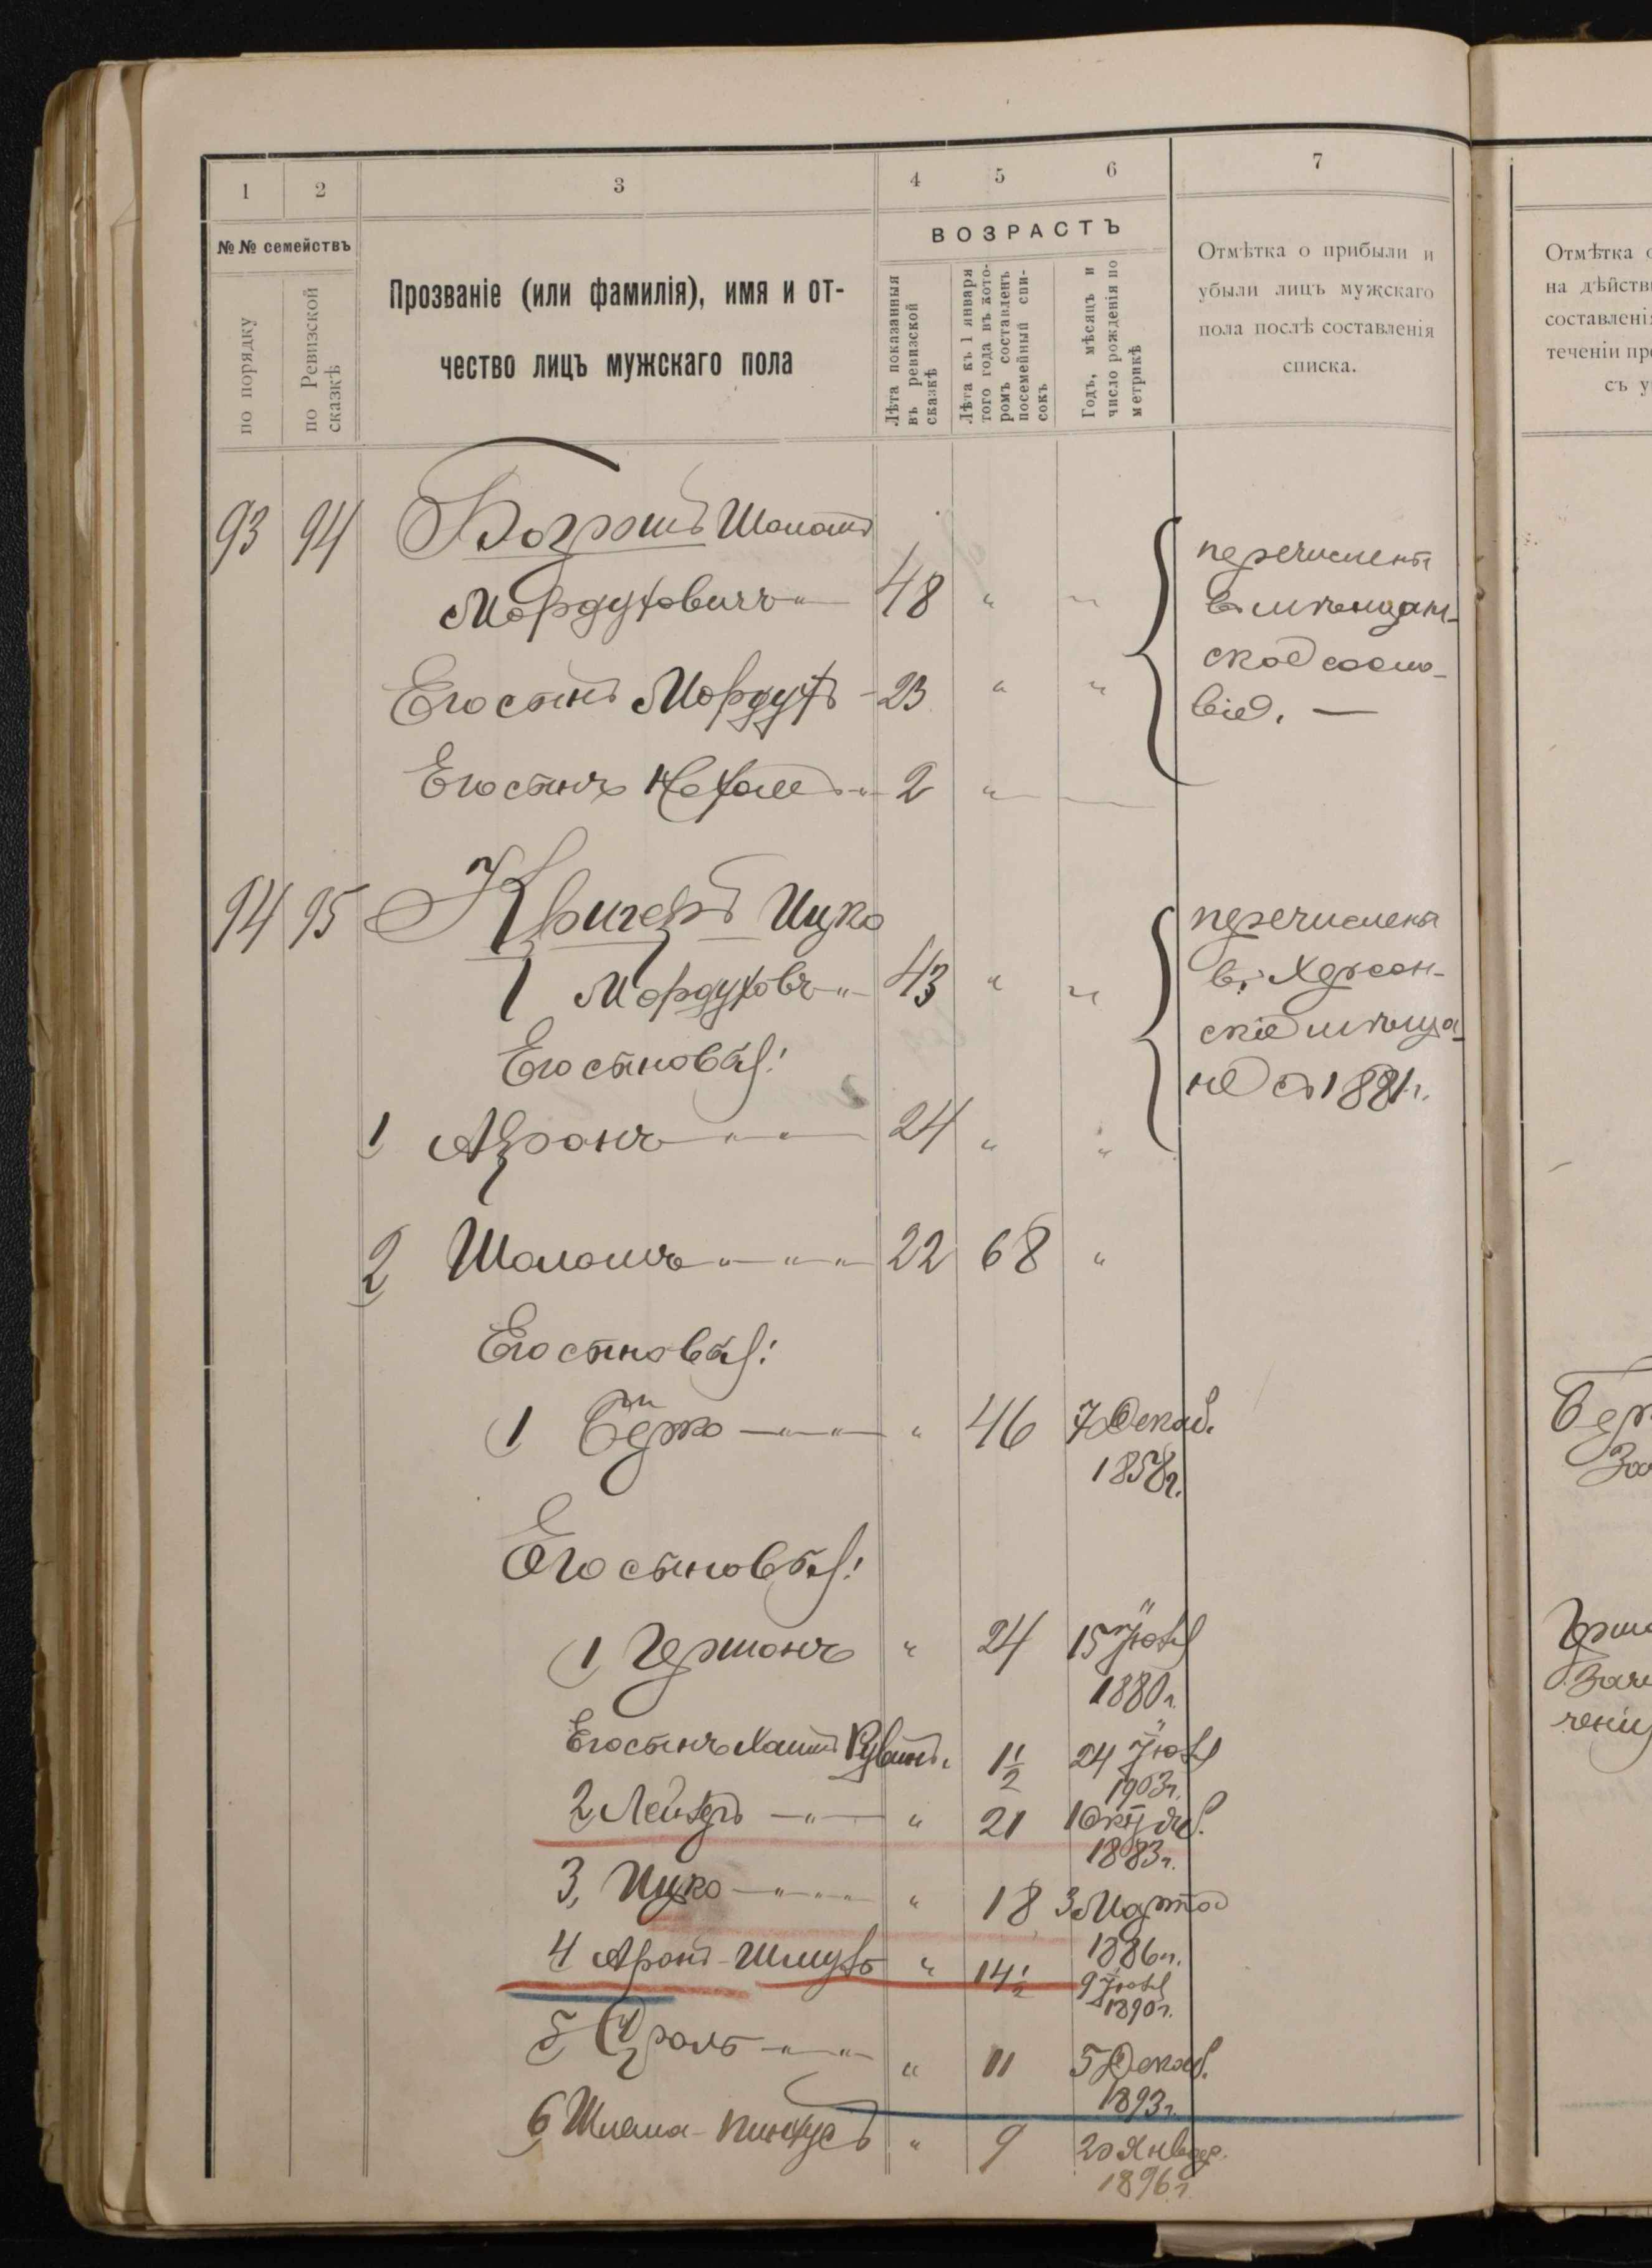 1 2 3 4 5 6 7
№№ семействъ
по порядку
по Ревизской сказкѣ
Прозваніе (или фамилія), имя и от-
чество лицъ мужскаго пола
ВОЗРАСТЪ
Лѣта показанныя
въ ревизской
сказкѣ
Лѣта къ 1 января
того года въ кото-
ромъ составленъ
посемейный спи-
сокъ
Годъ, мѣсяцъ и
число рожденія по
метрикѣ
Отмѣтка о прибыли и
убыли лицъ мужскаго
пола послѣ составленія
списка.
Отмѣтка
на дѣйств
составлені
теченіи пр
съ у
93 94 Шоломъ
Мордуховичъ " 48 " "
Его сынъ Мордухъ - 23 " "
Его сынъ " 2 "
перечислены
въ мѣщан-
ское сосло-
віе. —
94 95 Кригеръ Ицко
Мордуховъ " 43 " "
Его сыновья:
1 Аронъ " " 24 " "
перечислены
въ Херсон-
скіе мѣща-
не съ 1881 г.
2 Шоломъ " " " 22 68 "
Его сыновья:
1 Берко " " " 46 7 Декаб.
1858 г.
Его сыновья:
1 Гершонъ " 24 15 Іюля
1880 г.
Его сынъ Хаимъ Рувинъ. 1 1/2 24 Іюля
1903 г.
2 Лейзеръ " " 21 1 Октяб.
1883 г.
3, Ицко " " " " 18 3 Марта
1886 г.
4 Аронъ-Шмуль " 14 1/2 9 Іюля
1890 г.
5 Сроль " " " 11 5 Декаб.
1893 г.
6 Шлема-Пинхусъ " 9 20 Январ.
1896 г.
Бер
Герш